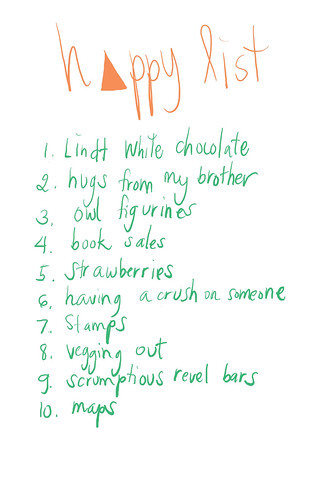 happy list
1. Lindt White chocolate
2. hugs from my brother
3. owl figurines
4. book sales
5. strawberries
6. having a crush on someone
7. Stamps
8. vegging out
9. scrumptious revel bars
10. maps